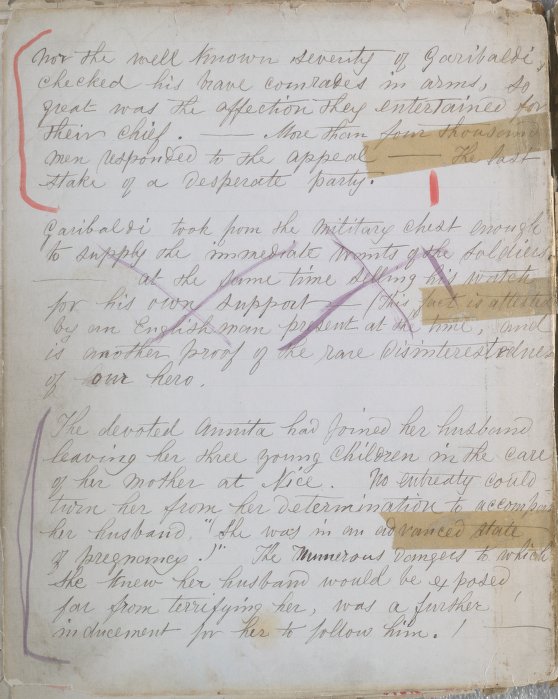 Nor the well known severity of Garibaldi,
checked his brave comrades in arms, so
great was the affection they entertained for
their chief. — More than four thousand
men responded to the appeal — The last
stake of a desperate party.
Garibaldi took from the military chest enough
to supply the immediate wants of the soldiers,
— at the same time selling his watch
for his own support — (this fact is attested
by an Englishman present at the time, and
is another proof of the rare disinterestedness
of our hero.
The devoted Annita had joined her husband
leaving her three young children in the care
of her mother at Nice. No entreaty could
turn her from her determination to accompany
her husband. "She was in an advanced state
of pregnancy!" The numerous dangers to which
she knew her husband would be exposed
far from terrifying her, was a further
inducement for her to follow him. !